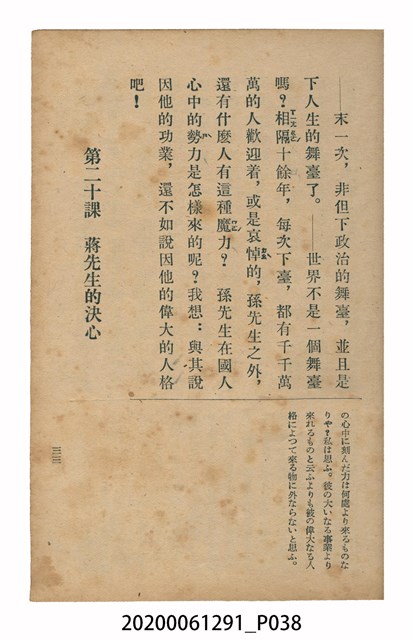 ——末一次，非但下政治的舞臺，並且是
下人生的舞臺了。——世界不是一個舞臺
嗎？相隔十餘年，每次下臺，都有千千萬
萬的人歡迎着，或是哀悼的，孫先生之外，
還有什麽人有這種魔力？ 孫先生在國人
心中的勢力是怎樣來的呢？我想：與其說
因他的功業，還不如說因他的偉大的人格
吧！
第二十課 蔣先生的決心
の心中に刻んだ力は何處より來るものな
りや？私は思ふ。彼の大いなる事業より
來れるものと云ふよりも彼の偉大なる人
格によつて來る物に外ならないと思ふ。
三三
20200061291_P038